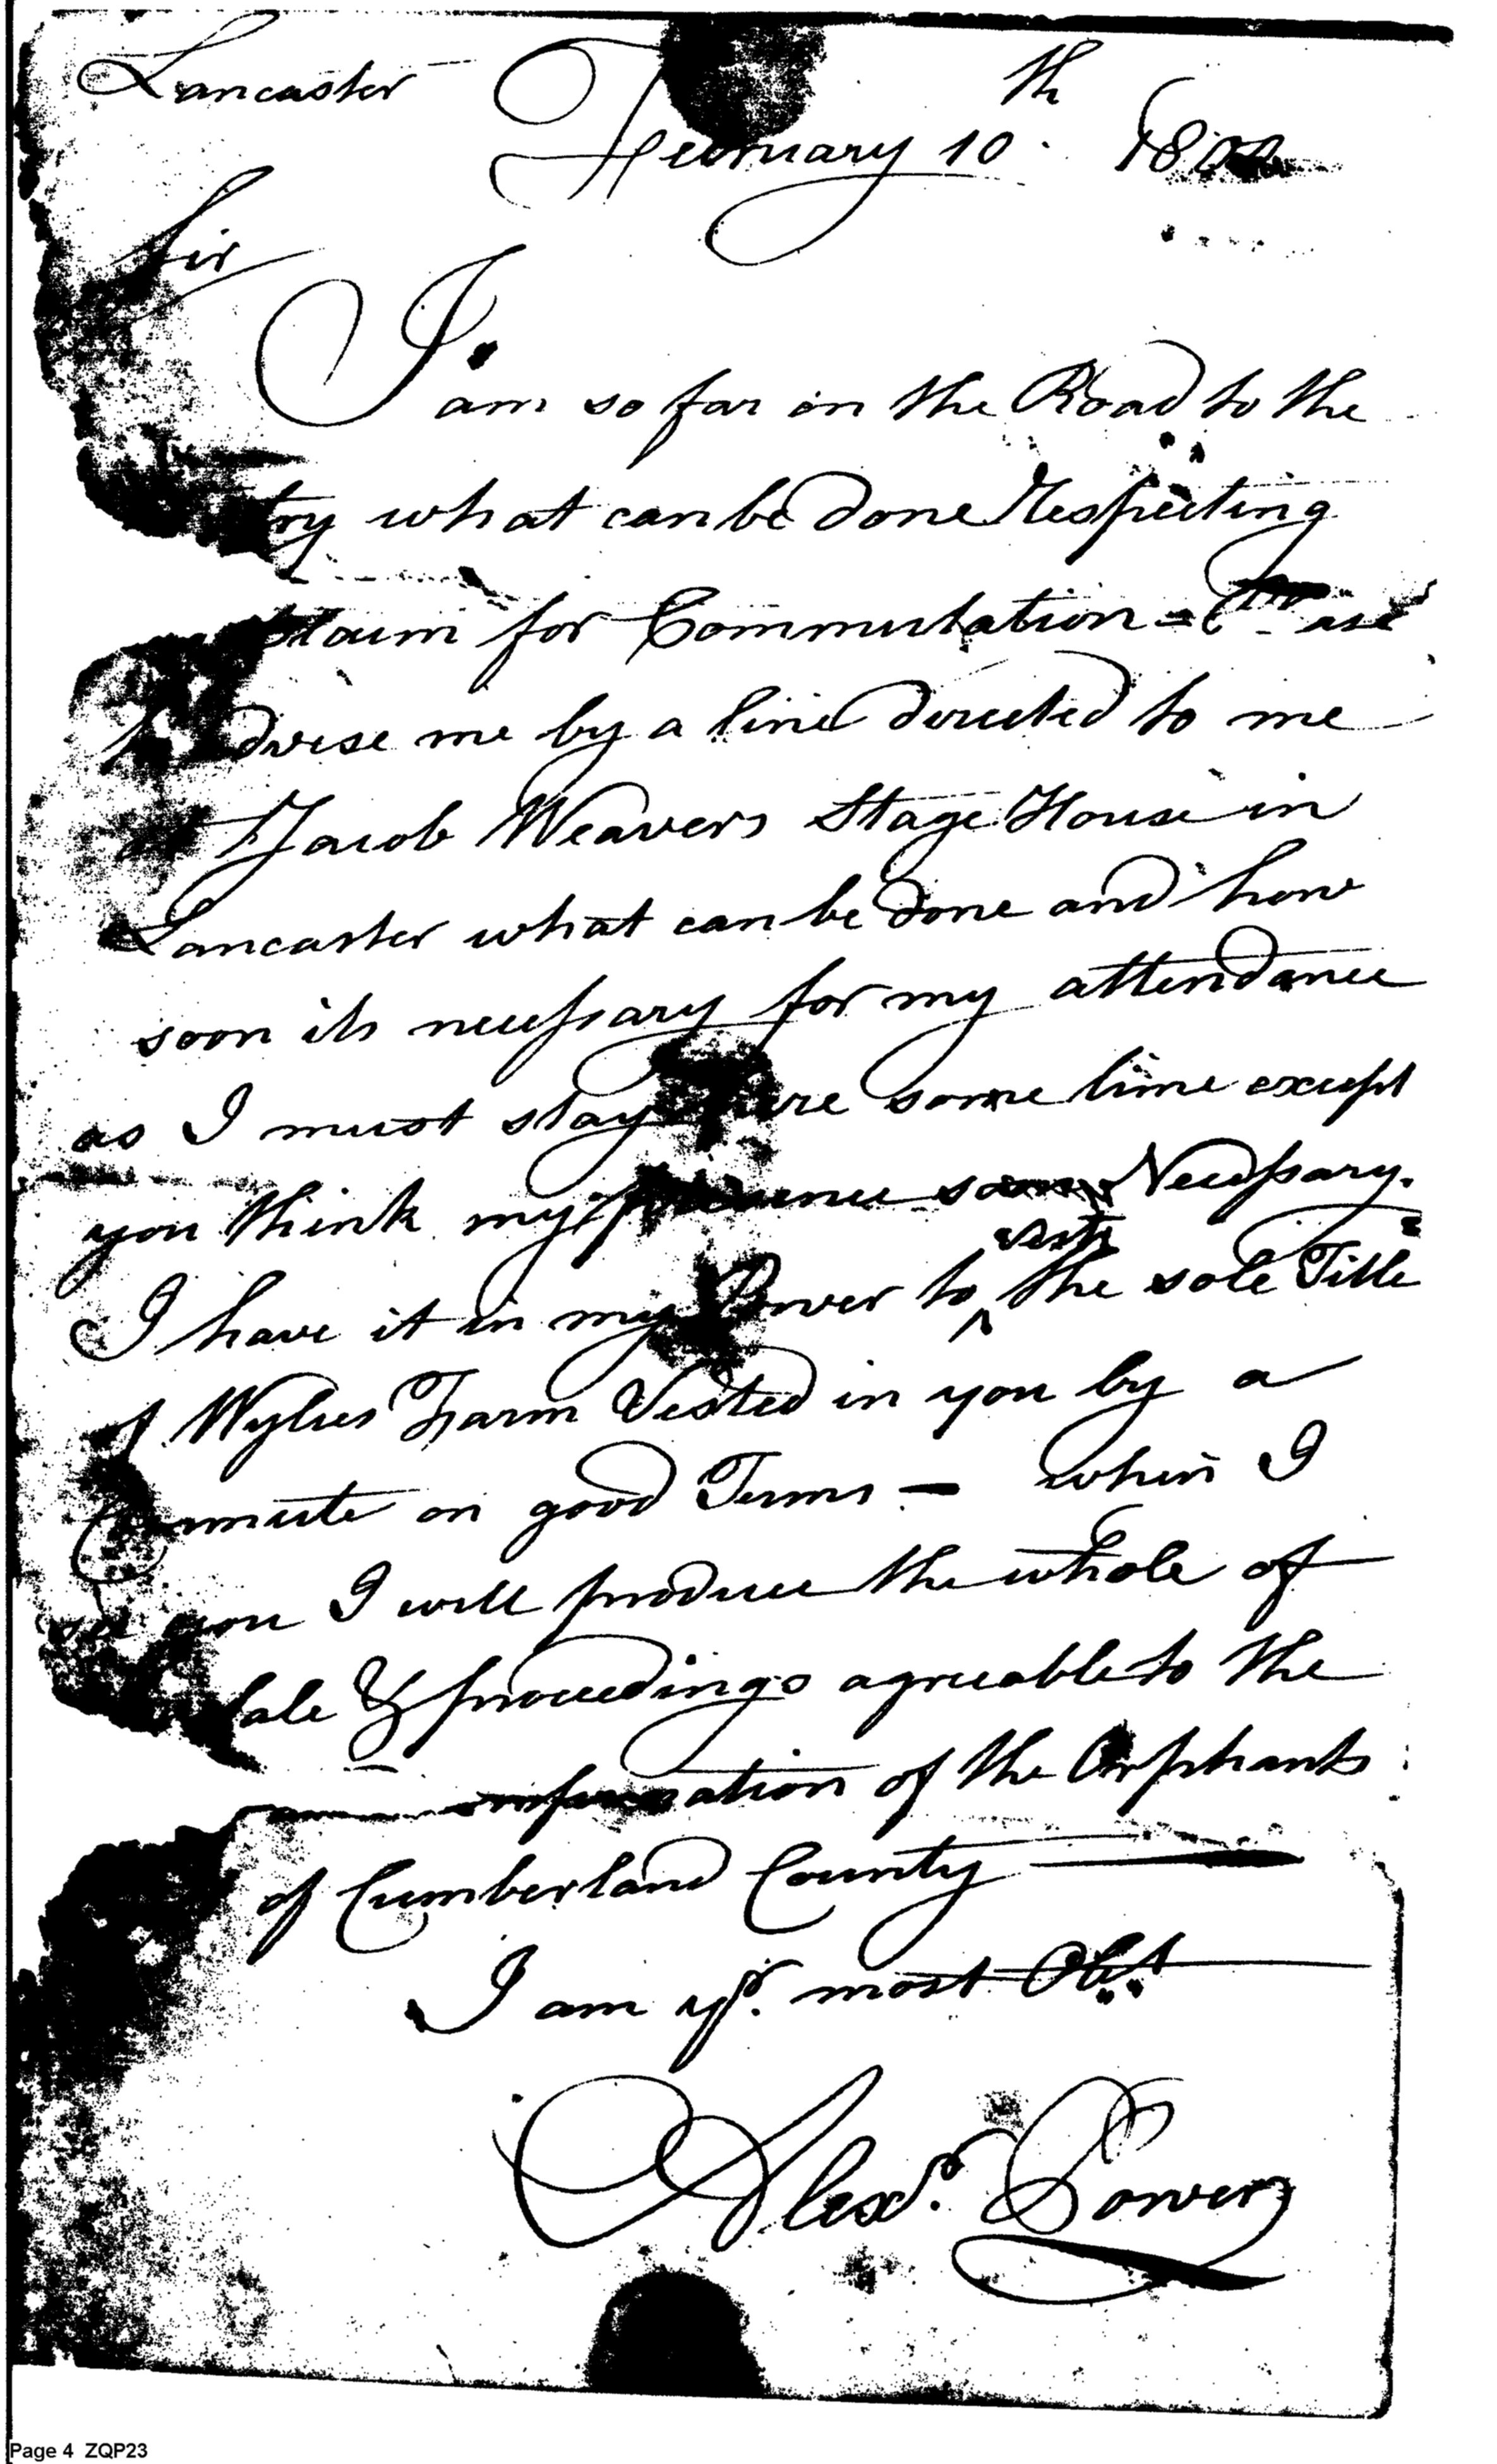 Lancaster February 10th 180
Sir
I
am so far on the Road to the
try what can be done Respecting
Claim for Commutation = Please
advise me by a line directed to me
Jacob Weavers Stage House in
Lancaster what can be done and how
soon its necessary for my attendance
as I must stay here some time except
you think my presence soon Necessary.
I have it in my Power to ^ the sole Title
of Wylies Farm Vested in you by a
Commute on good Terms — when I
see you I will produce the whole of
Sale & proceedings agreeable to the
of the Orphants
of Cumberland County
I am yr. most Obt
Alexr. Power
Page 4 ZQP23